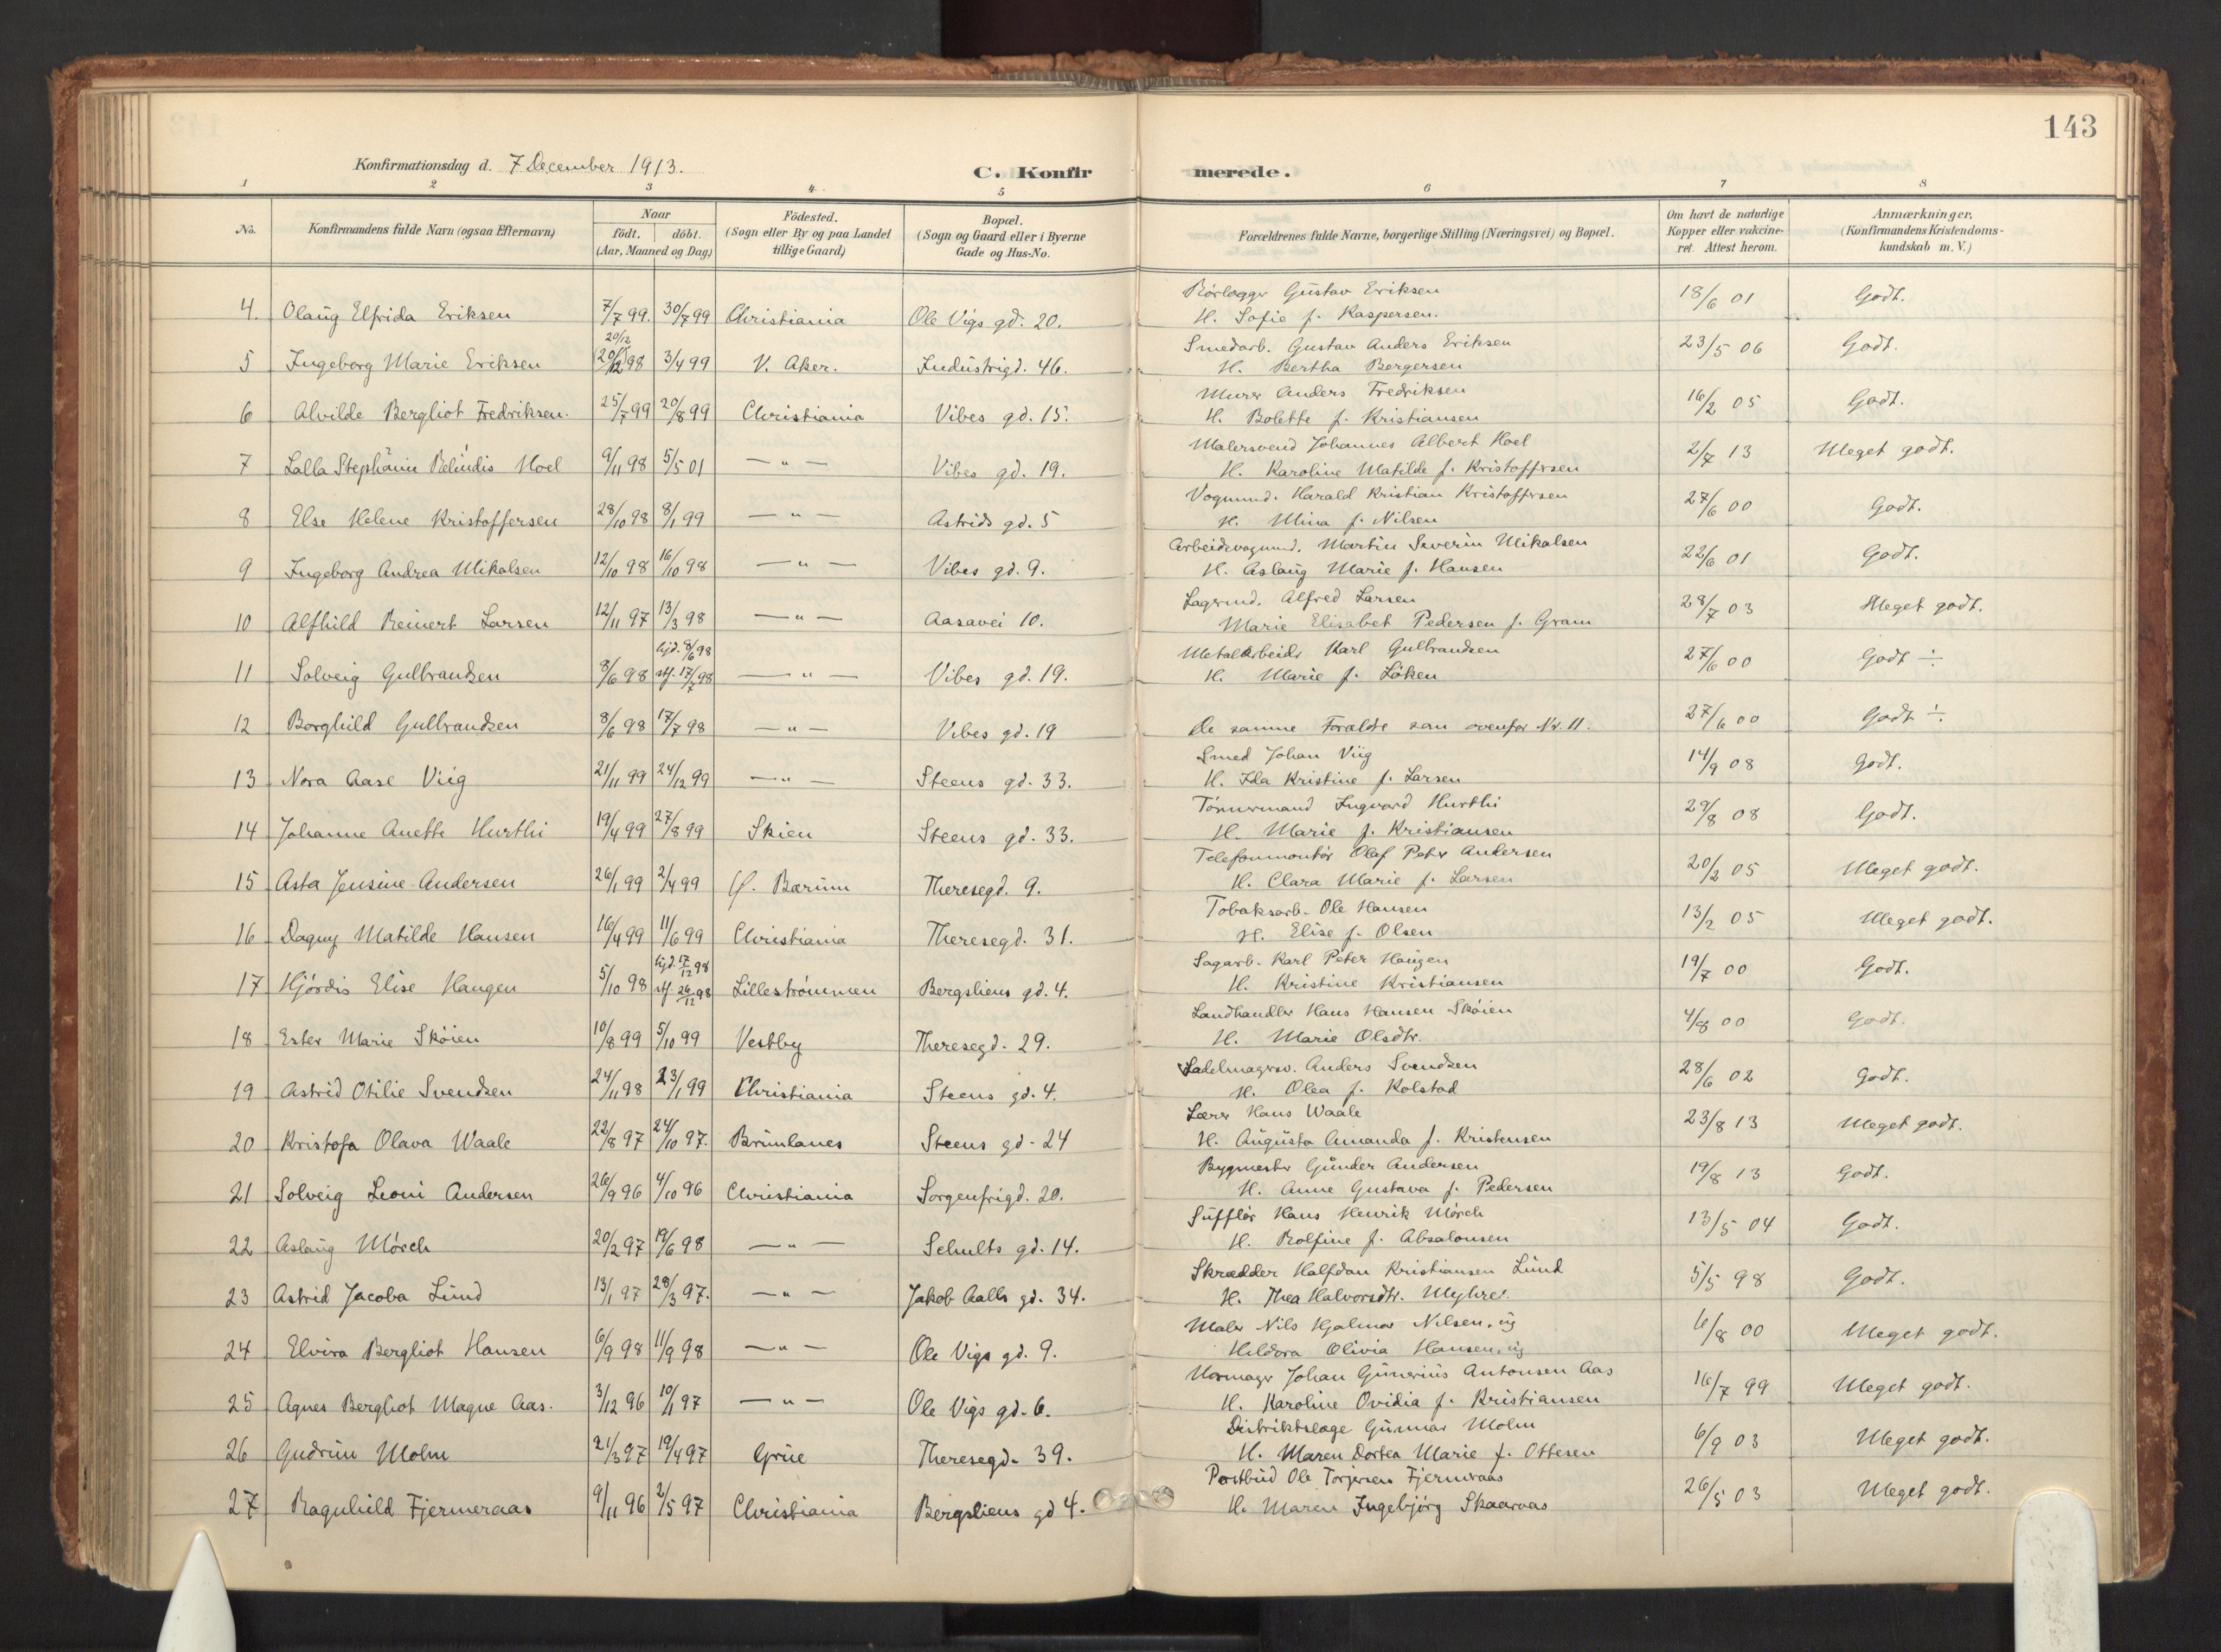 143
Konfirmationsdag d. 7 December 1913.
C. Konfirmerede.
1 2 3 4 5 6 7 8
No.
Konfirmandens fulde Navn (ogsaa Efternavn)
Naar
født. døbt.
(Aar, Maaned og Dag)
Födested.
(Sogn eller By og paa Landet
tillige Gaard)
Bopæl.
(Sogn og Gaard eller i Byerne
Gade og Hus-No.
Forældrenes fulde Navne, borgerlige Stilling (Næringsvei) og Bopæl.
Om havt de naturlige
Kopper eller vakcine-
ret. Attest herom.
Anmærkninger,
(Konfirmandens Kristendoms-
kundskab m. V.)
Rörlægger Gustav Eriksen
4. Olaug Elfrida Eriksen 7/7 99. 30/7 99 Christiania Ole Vigs gd. 20. H. Sofie f. Kaspersen. 18/6 01 Godt.
20/12
Smedarb. Gustav Anders Eriksen
5 Ingeborg Marie Eriksen (20/12) 98 3/4 99 V. Aker. Industrigd. 46. H. Bertha Bergersen 23/5 06 Godt.
Murer Anders Fredriksen
6 Alvilde Bergliot Fredriksen. 25/7 99 20/8 99 Christiania Vibes gd. 15. H. Bolette f. Kristiansen 16/2 05 Godt.
Malersvend Johannes Albert Hoel
7 Lalla Stephänie Belindis Hoel 9/11 98 5/5 01 — " — Vibes gd. 19. H. Karoline Matilde f. Kristoffersen 2/7 13 Meget godt.
Vognmd. Harald Kristian Kristoffersen
8 Else Helene Kristoffersen 28/10 98 8/1 99 — " — Astrids gd. 5 H. Mina f. Nilsen 27/6 00 Godt.
Arbeidsvognmd. Martin Severin Mikalsen
9 Ingeborg Andrea Mikalsen 12/10 98 16/10 98 — " — Vibes gd. 9. H. Aslaug Marie f. Hansen 22/6 01 Godt.
Lagermd. Alfred Larsen
10 Alfhild Reinert Larsen 12/11 97 13/3 98 — " — Aasavei 10. Marie Elisabet Pedersen f. Gram 28/7 03 Meget godt.
hjd. 8/6 98
Metalarbeider Karl Gulbrandsen
11 Solveig Gulbrandsen 8/6 98 stf. 17/7 98 — " — Vibes gd. 19. H. Marie f. Löken 27/6 00 Godt ÷
12 Borghild Gulbrandsen 8/6 98 17/7 98 — " — Vibes gd. 19 De samme Forældre som ovenfor Nr. 11. 27/6 00 Godt ÷.
Smed Johan Viig
13 Nora Aase Viig 21/11 99 24/12 99 — " — Steens gd. 33. H. Ida Kristine f. Larsen 14/9 08 Godt.
Tömmermand Ingvard Hurthi
14 Johanne Anette Hurthi 19/4 99 27/8 99 Skien Steens gd. 33. H. Marie f. Kristiansen 29/8 08 Godt.
Telefonmontör Olaf Peter Andersen
15 Asta Jensine Andersen 26/1 99 2/4 99 Ø. Bærum Theresegd. 9. H. Clara Marie f. Larsen 20/2 05 Meget godt.
Tobaksarb. Ole Hansen
16 Dagny Matilde Hansen 16/4 99 11/6 99 Christiania Theresegd. 31. H. Elise f. Olsen 13/2 05 Meget godt.
hjd. 17/12 98
Sagarb. Karl Peter Haugen
17 Hjördis Elise Haugen 5/10 98 stf. 26/12 98 Lilleströmmen Bergsliens gd. 4. H. Kristine Kristiansen 19/7 00 Godt.
Landhandler Hans Hansen Skøien
18 Ester Marie Skøien 10/8 99 5/10 99 Vestby Theresegd. 29. H. Marie Olsdtr. 4/8 00 Godt.
Sadelmagersv. Anders Svendsen
19 Astrid Otilie Svendsen 24/11 98 23/1 99 Christiania Steens gd. 4. H. Olea f. Kolstad 28/6 02 Godt.
Lærer Hans Waale
20 Kristofa Olava Waale 22/8 97 24/10 97. Brunlanes Steens gd. 24 H. Augusta Amanda f. Kristensen 23/8 13 Meget godt.
Bygmester Gunder Andersen
21 Solveig Leoni Andersen 26/9 96 4/10 96 Christiania Sorgenfrigd. 20. H. Anne Gustava f. Pedersen 19/8 13 Godt.
Sufflör Hans Henrik Mörch
22 Aslaug Mörch 20/2 97 19/6 98 — " — Schults gd. 14. H. Rolfine f. Absalonsen 13/5 04 Godt.
Skrædder Halfdan Kristiansen Lund
23 Astrid Jacoba Lund 13/1 97 28/3 97. — " — Jakob Aalls gd. 34. H. Thea Halvorsdtr. Myhre. 5/5 98 Godt.
Maler Nils Hjalmar Nilsen, ug
24 Elvira Bergliot Hansen 6/9 98 11/9 98 — " — Ole Vigs gd. 9. Heldora Olivia Hansen, ug 6/8 00 Meget godt.
Johan Gunerius Antonsen Aas
25 Agnes Bergliot Magne Aas. 3/12 96 10/1 97 — " — Ole Vigs gd. 6. H. Karoline Ovidia f. Kristiansen 16/7 99 Meget godt.
Distriktslæge Gunnar Molm
26 Gudrun Molm 21/3 97 19/4 97 Grue Theresegd. 39. H. Maren Dortea Marie f. Ottesen 6/9 03 Meget godt.
Postbud Ole Torjersen Fjermeraas
27 Ragnhild Fjermeraas 9/11 96 2/5 97 Christiania Bergsliens gd 4. H. Maren Ingebjörg Skaaraas 26/5 03 Meget godt.